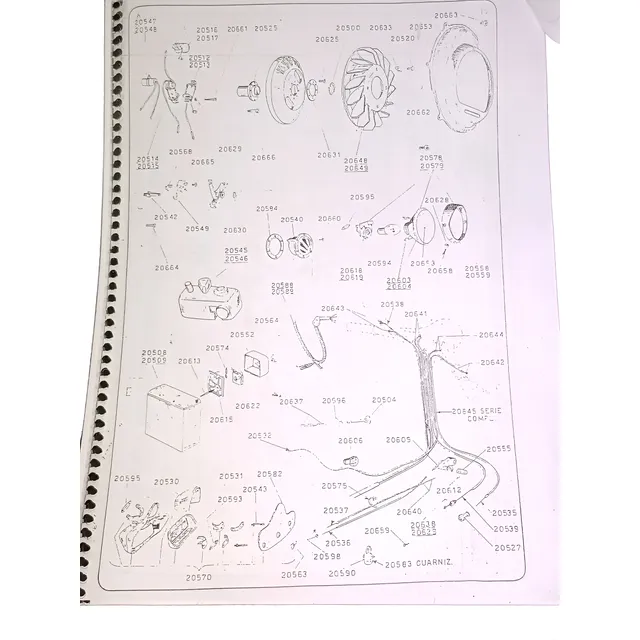 20547
20548
20516 20661 20525
20517
20500 20633
20663
20653
20625
20520
20512
20513
20662
20514
20515
20568
20665
20629
20666
20631
20648
20649
20578
20579
20542
20549
20630
20584
20540
20660
20595
20628
20664
20545
20546
20618
20619
20594
20603
20604
20653
20658
20558
20559
20588
20589
20564
20643
20538
20641
20644
20642
20552
20574
20508
20509
20613
20622
20615
20637
20596
20504
20645 SERIE
COMPL.
20532
20606
20605
20555
20595
20530
20531
20593
20582
20543
20575
20612
20537
20640
20638
20629
20535
20539
20527
20536
20598
20659
20583 GUARNIZ.
20590
20570
20563